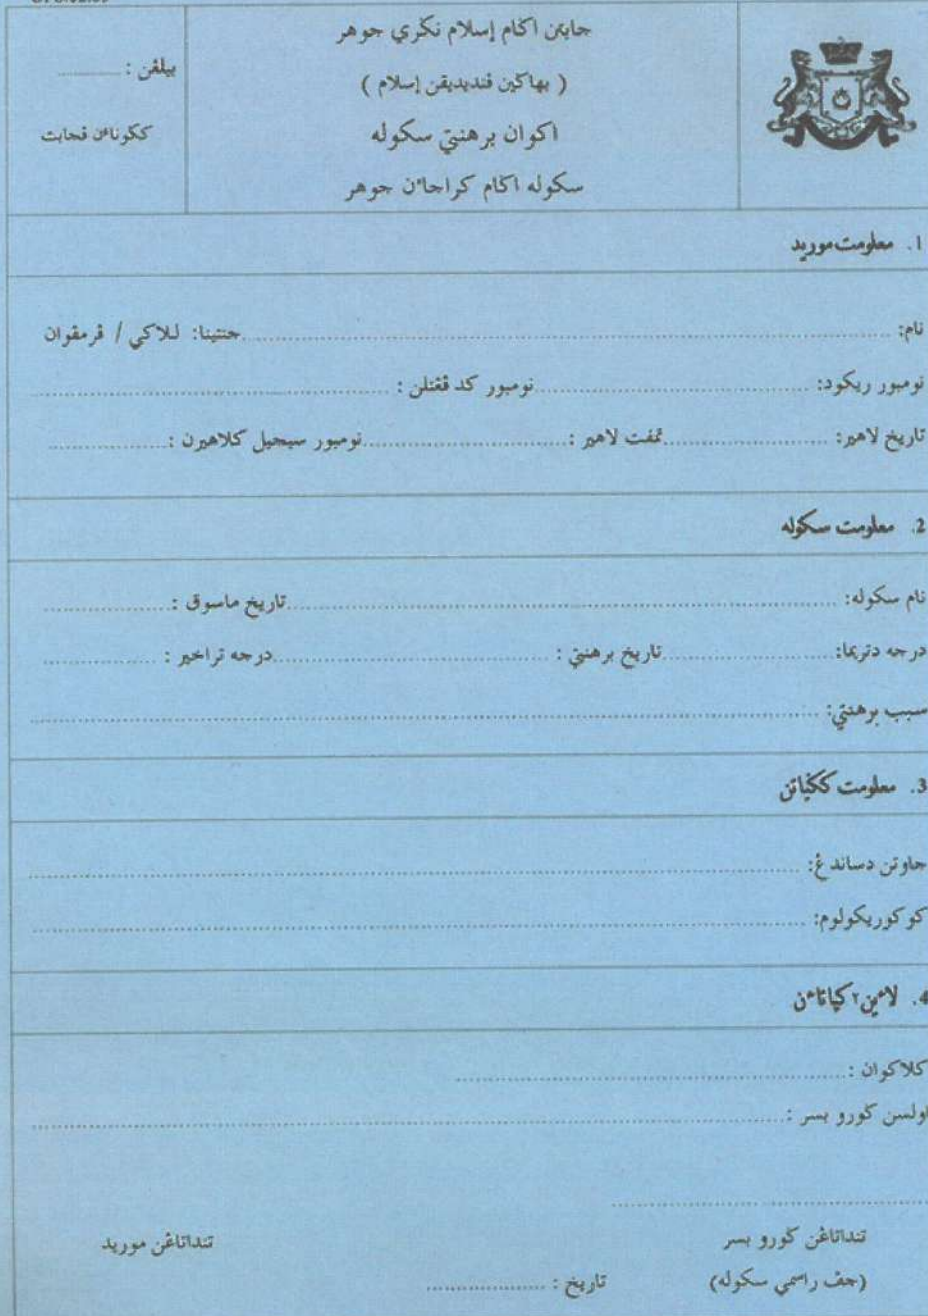 جابتن اݢام إسلام نݢري جوهر
( بهاݢين ڤنديديقن إسلام )
اکوان برهنتي سکوله
سکوله اݢام کراجاءن جوهر
بيلڠن : ............
کݢوناءن ڤجابت
1. معلومت موريد
نام: ............ جنتينا: للاکي / ڤرمڤوان
نومبور ريکود: ............ نومبور کد ڤڠنلن : ............
تاريخ لاهير: ............ تمڤت لاهير : ............ نومبور سيجيل کلاهيرن : ............
2. معلومت سکوله
نام سکوله: ............ تاريخ ماسوق : ............
درجه دتريما: ............ تاريخ برهنتي : ............ درجه تراخير : ............
سبب برهنتي: ............
3. معلومت کݢياتن
جاوتن دساندڠ: ............
کوکوريکولوم: ............
4. لاءين٢ کڽاتاءن
کلاکوان : ............
اولسن ݢورو بسر : ............
تنداتاڠن ݢورو بسر
تنداتاڠن موريد
(چڤ راسمي سکوله)
تاريخ : ............